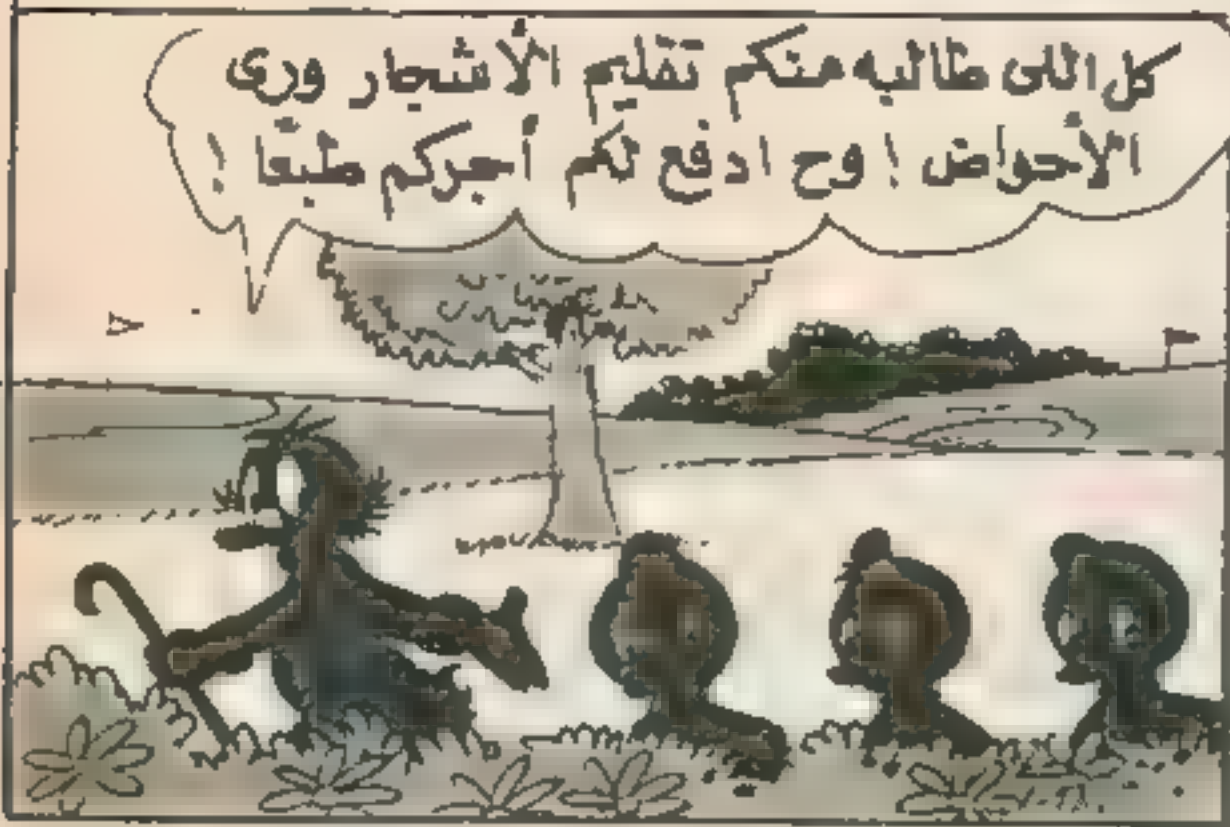 كل اللى طالبه منكم تقليم الأشجار ورىّ
الأحواض ! وح ادفع لكم أجركم طبعًا !